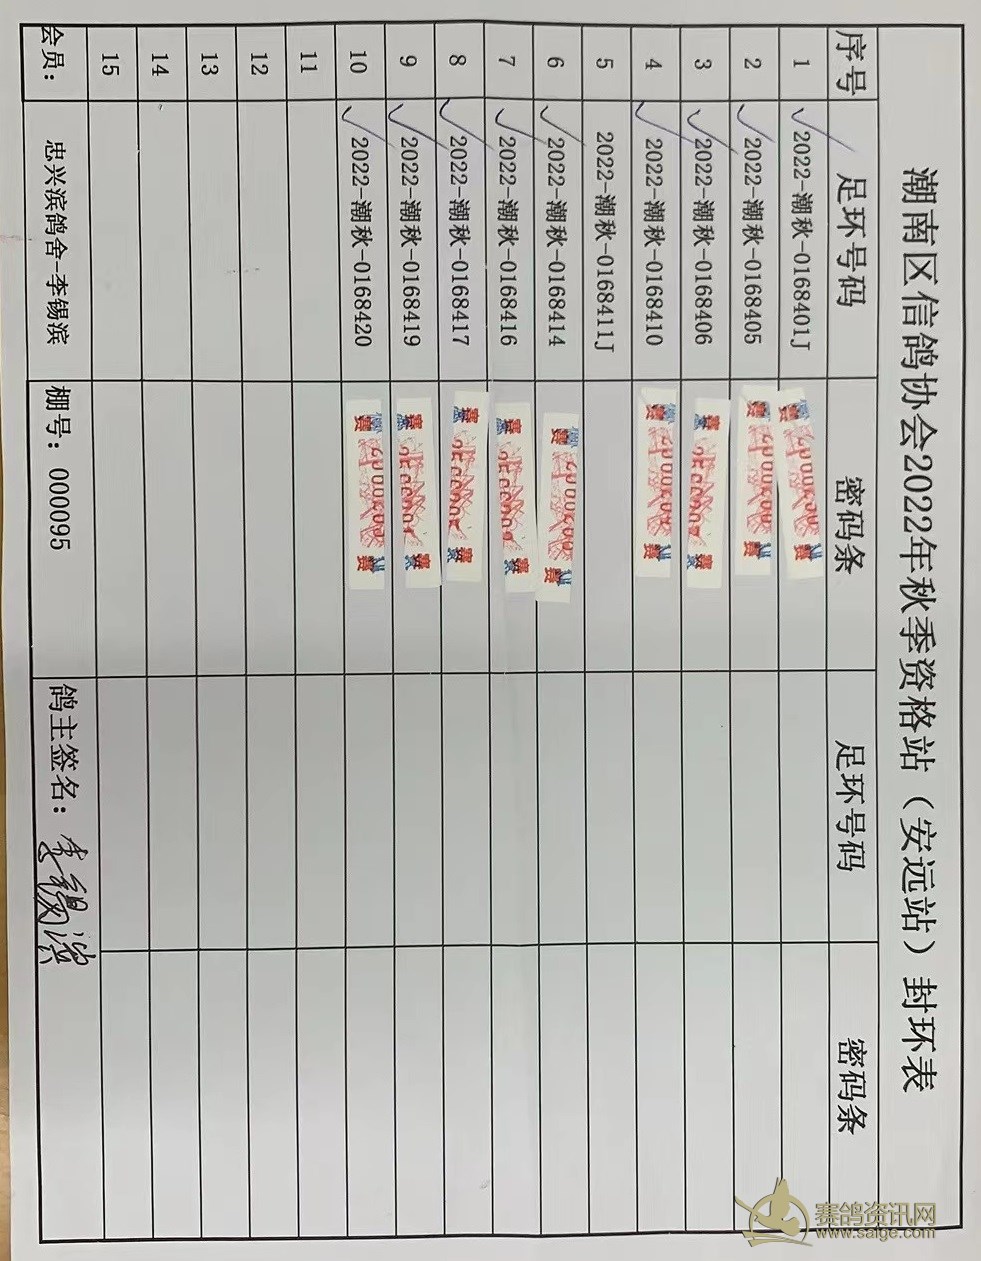 潮南区信鸽协会2022年秋季资格站（安远站）封环表
序号 足环号码 密码条 足环号码 密码条
1 2022-潮秋-0168401J
2 2022-潮秋-0168405
3 2022-潮秋-0168406
4 2022-潮秋-0168410
5 2022-潮秋-0168411J
6 2022-潮秋-0168414
7 2022-潮秋-0168416
8 2022-潮秋-0168417
9 2022-潮秋-0168419
10 2022-潮秋-0168420
11
12
13
14
15
会员： 忠兴滨鸽舍-李锡滨 棚号：0000095 鸽主签名：李锡滨
赛鸽资讯网
www.saige.com